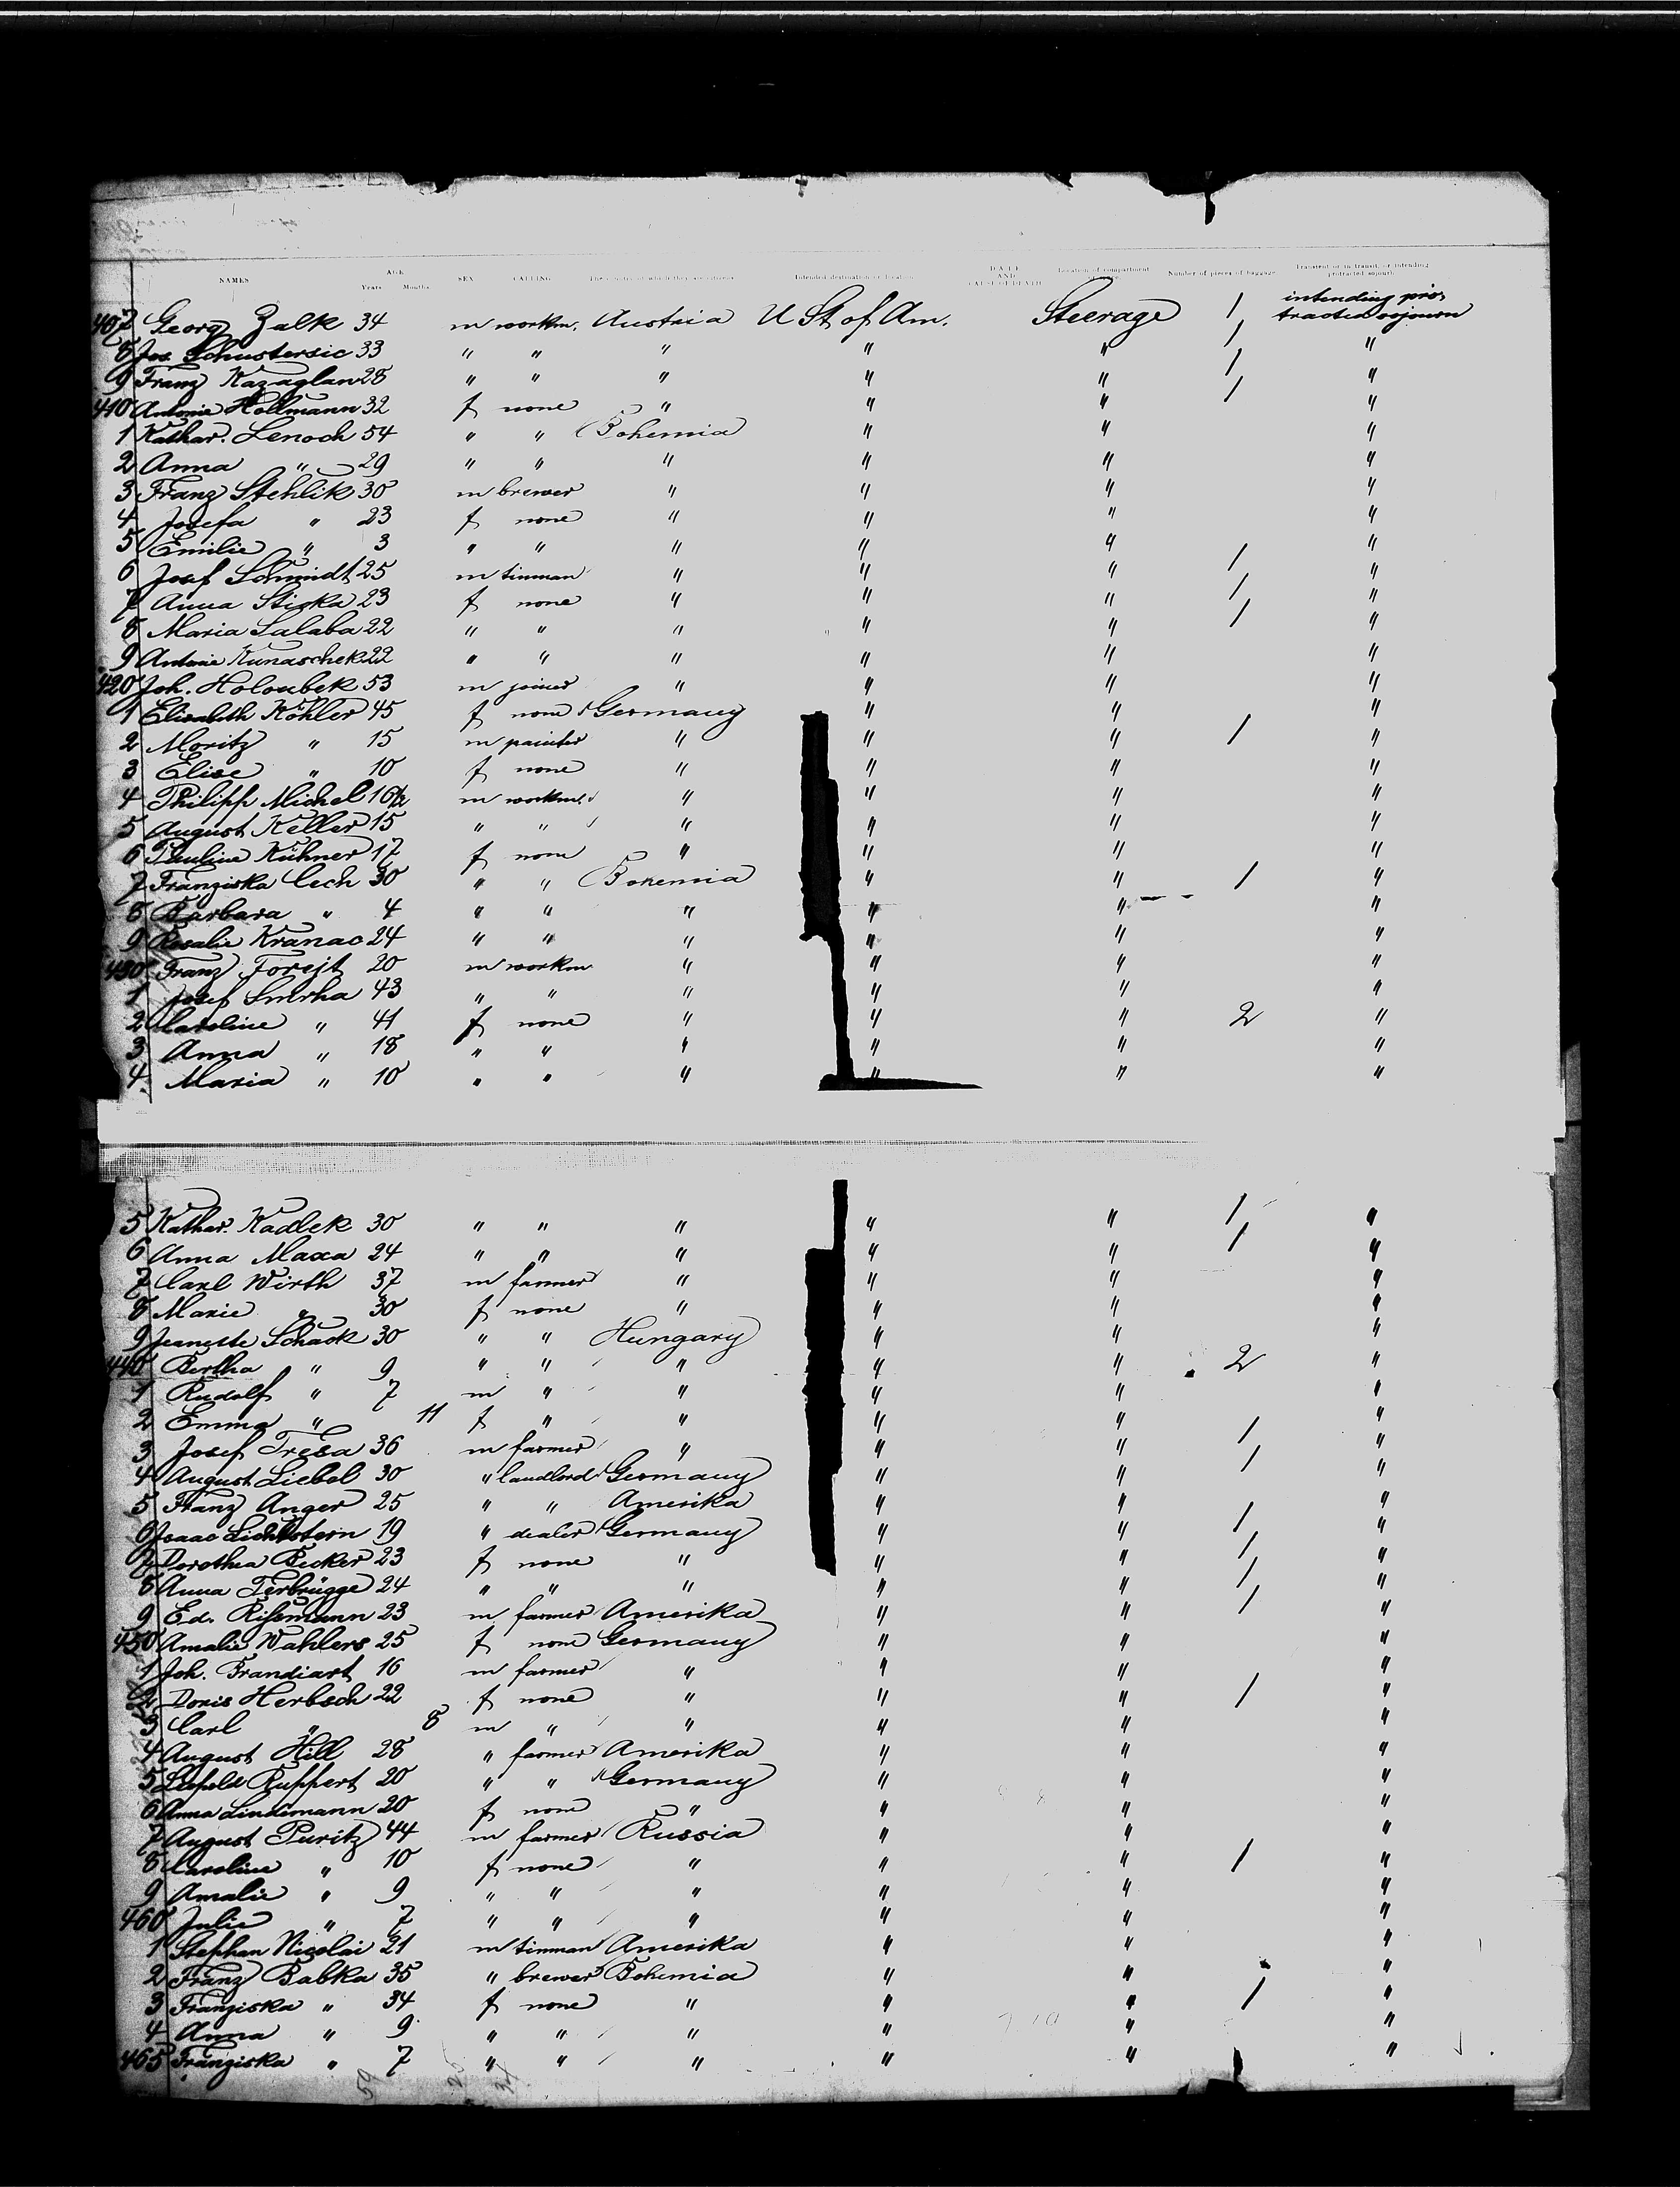 NAMES AGE Years Months SEX CALLING The country of which they are citizens Intended destination or location DATE AND CAUSE OF DEATH Location of compartment Number of pieces of baggage Transient or in transit, or intending protracted sojourn
407 Georg Zalk 34 m workm. Austria U St of Am. Steerage 1 intending pro- tracted sojourn
8 Jos. Schustersic 33 " " " " " 1 "
9 Franz Kazaglan 28 " " " " " 1 "
410 Antonie Hollmann 32 f none " " " 1 "
1 Kathar. Lenoch 54 " " Bohemia " " "
2 Anna " 29 " " " " " "
3 Franz Stehlik 30 m brewer " " " "
4 Josefa " 23 f none " " " "
5 Emilie " 3 " " " " " "
6 Josef Schmidt 25 m tinman " " " 1 "
7 Anna Stiska 23 f none " " " 1 "
8 Maria Salaba 22 " " " " " 1 "
9 Antonie Kunaschek 22 " " " " " "
420 Joh. Holoubek 53 m joiner " " " "
1 Elisabeth Köhler 45 f none Germany " " "
2 Moritz " 15 m painter " " " 1 "
3 Elise " 10 f none " " " "
4 Philipp Michel 16½ m workm. " " " "
5 August Keller 15 " " " " " "
6 Pauline Kühner 17 f none " " " "
7 Franziska Cech 30 " " Bohemia " " 1 "
8 Barbara " 4 " " " " " "
9 Rosalie Kranac 24 " " " " " "
430 Franz Forejt 20 m workm " " " "
1 Josef Smrha 43 " " " " " "
2 Caroline " 41 f none " " " 2 "
3 Anna " 18 " " " " " "
4 Maria " 10 " " " " " "
5 Kathar. Kadlek 30 " " " " " 1 "
6 Anna Maxa 24 " " " " " 1 "
7 Carl Wirth 37 m farmer " " " "
8 Marie " 30 f none " " " "
9 Jeanette Schack 30 " " Hungary " " "
440 Bertha " 9 " " " " " 2 "
1 Rudolf " 7 m " " " " "
2 Emma " 11 f " " " " "
3 Josef Tresa 36 m farmer " " " 1 "
4 August Liebol 30 " landlord Germany " " 1 "
5 Franz Anger 25 " " Amerika " " "
6 Isaac Lichtstern 19 " dealer Germany " " 1 "
7 Dorothea Becker 23 f none " " " 1 "
8 Anna Terbrügge 24 " " " " " 1 "
9 Ed. Rißmann 23 m farmer Amerika " " 1 "
450 Amalie Wahlers 25 f none Germany " " "
1 Joh. Frandiart 16 m farmer " " " "
2 Doris Herbsch 22 f none " " " 1 "
3 Carl " 8 m " " " " "
4 August Hill 28 " farmer Amerika " " "
5 Leopold Ruppert 20 " " Germany " " "
6 Anna Lindemann 20 f none " " " "
7 August Puritz 44 m farmer Russia " " "
8 Caroline " 10 f none " " " 1 "
9 Amalie " 9 " " " " " "
460 Julie " 7 " " " " " "
1 Stephan Nicolai 21 m tinman Amerika " " "
2 Franz Babka 35 " brewer Bohemia " " "
3 Franziska " 34 f none " " " 1 "
4 Anna " 9 " " " " " "
465 Franziska " 7 " " " " " "